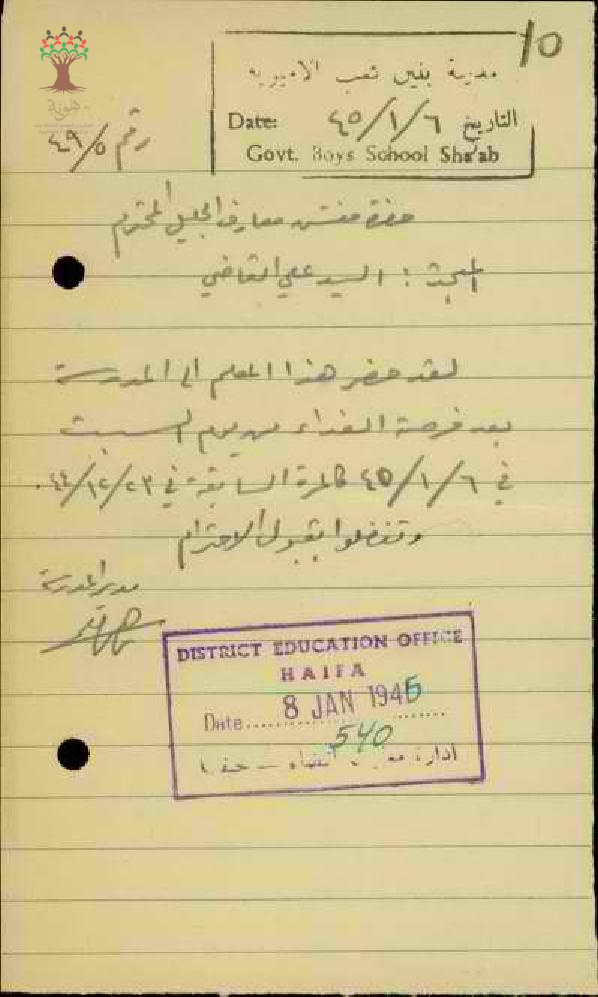 10
هوية
مدرسة بنين شعب الأميرية
Date: ٤٥/١/٦ التاريخ
Govt. Boys School Sha'ab
رقم ٤٩/٥
حضرة مفتش معارف الجليل المحترم
المبحث : السيد علي القاضي
لقد حضر هذا المعلم الى المدرسة
بعد فرصة الغداء من يوم السبت
في ٤٥/١/٦ كالمرة السابقة في ٤٤/١٢/٢٣.
وتفضلوا بقبول الاحترام
مدير المدرسة
DISTRICT EDUCATION OFFICE
HAIFA
Date 8 JAN 1945
540
ادارة معارف